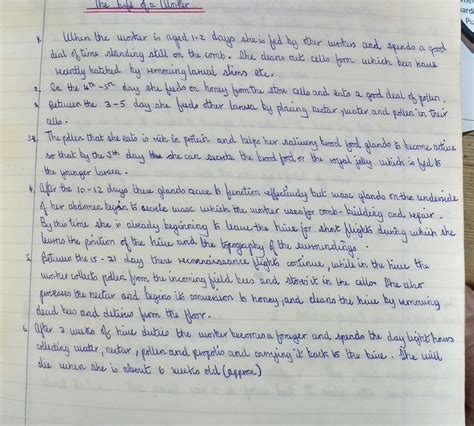 The Life of a Worker
1. When the worker is aged 1-2 days she is fed by other workers and spends a good
deal of time standing still on the comb. She cleans out cells from which bees have
recently hatched by removing larval skins etc.
2. On the 4th-5th day she feeds on honey from the store cells and eats a good deal of pollen.
3. Between the 3-5 day she feeds other larvea by placing nectar, water and pollen in their
cells.
The pollen that she eats is rich in protein and helps her salivery brood food glands to become active
so that by the 5th day she can secrete the brood food or the royal jelly which is fed to
the younger larvea.
4. After the 10-12 days these glands cease to function effectively but wasc glands on the underside
of her abdomen begin to secrete wasc which the worker uses for comb-building and repair.
By this time she is already beginning to leave the hive for short flights during which she
learns the position of the hive and the topography of the surroundings.
5. Between the 15-21 day these reconnaissance flights continue, while in the hive the
worker collects pollen from the incoming field bees and stores it in the cells. She also
processes the nectar and begins its conversion to honey, and cleans the hive by removing
dead bees and detrius from the floor.
6. After 3 weeks of hive duties the worker becomes a forager and spends the day light hours
collecting water, nectar, pollen and propolis and carrying it back to the hive. She will
die when she is about 6 weeks old (approx)